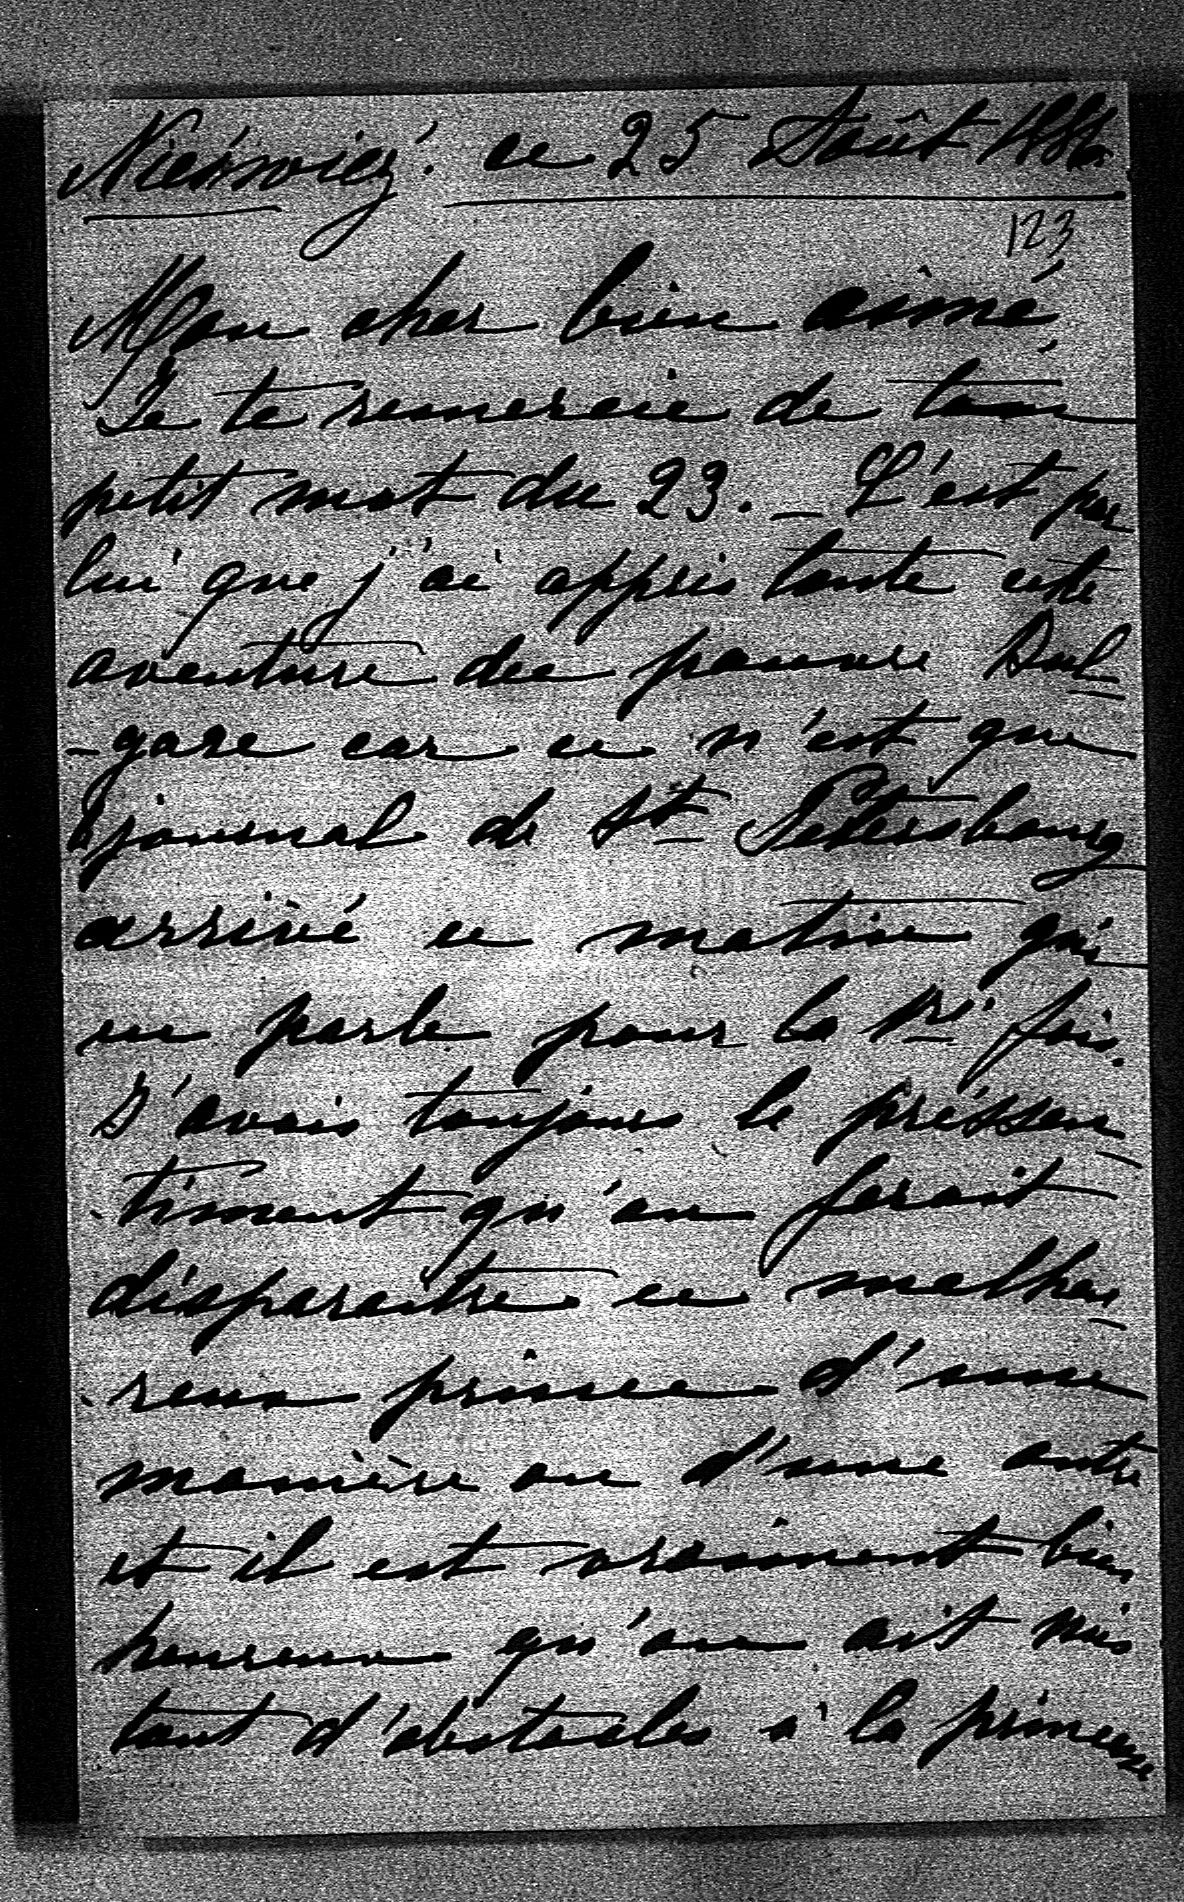 Nieświeź. ce 25 Août 1886.
123
Mon cher bien aimé
Je te remercie de ton
petit mot du 23. _ C'est par
lui que j'ai appris toute cette
aventure du pauvre Bul
-gare car ce n'est que
le journal de St Petersbourg
arrivé ce matin qui
en parle pour la 1re fois.
J'avais toujours le préssen
-timent qu'on ferait
disparaitre ce malheu
-reux prince d'une
manière ou d'une autre
et il est vraiment bien
heureux qu'on ait mis
tant d'obstacles à la princesse